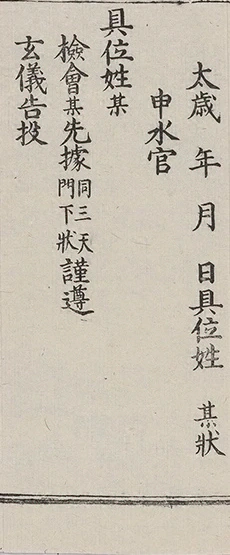 太歲 年 月 日具位姓 某狀
申水官
具位姓某
檢會某先據同三天門下狀謹遵
玄儀告投